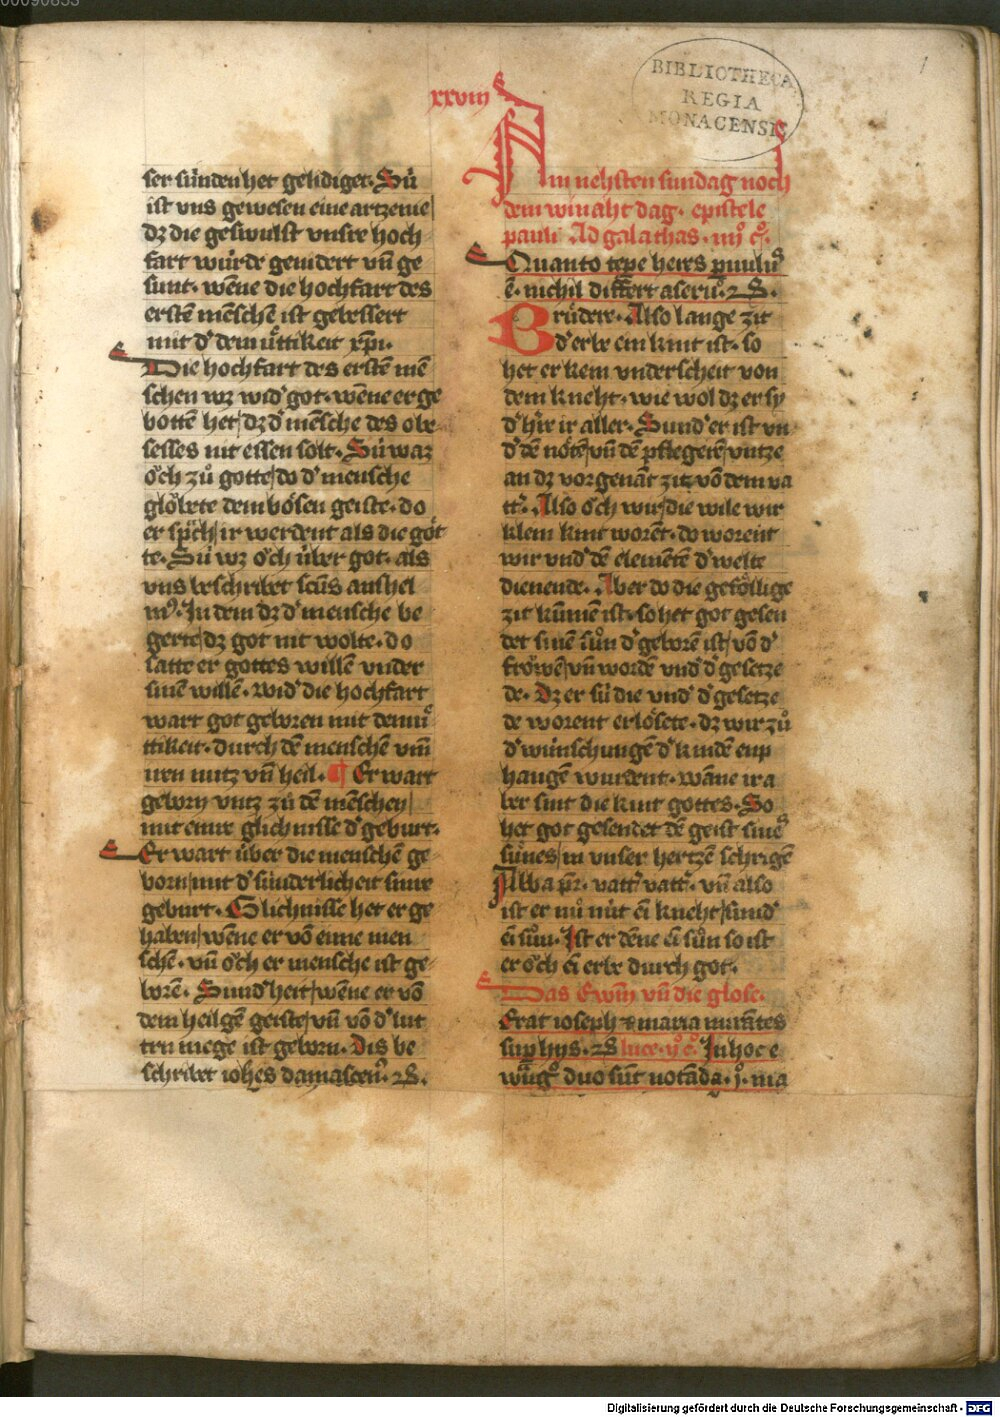 00090853
1
BIBLIOTHECA
REGIA
MONACENSIS
xxviii
ser sünden het gelidiget. Sü
ist vns gewesen eine artzenie
dz die geswulst vnsre hoch
fart würde gemidert vn̄ ge
sunt. wēne die hochfart des
erstēn mēnschē ist gebessert
mit d' demuͤttikeit xp̄i.
Die hochfart des erstē mē
schen wz wid' got. wēne er ge
bottē het dz d' mēnsche des obe
sesses nit essen solt. Sü waz
oͤch zuͦ gotte do d' mensche
gloͤbete dem boͤsen geiste. do
er sp̄ch ir werdent als die goͤt
te. Sü wz oͤch über got. als
vns beschribet scūs anshel
mꝰ. In dem dz d' mensche be
gerte dz got nit wolte. do
satte er gottes willē vnder
sinē willē. wid' die hochfart
wart got geboren mit demuͤ
ttikeit. durch dē menschē vm̄
iren nutz vn̄ heil. ¶ Er wart
geborn vntz zuͦ dē mēnschen
mit einre glichnisse d' geburt.
Er wart über die menschē ge
born mit d' sünderlicheit sinre
geburt. Glichnisse het er ge
haben wēne er vō einne men
schē. vn̄ oͤch er mensche ist ge
borē. Sund'heit wēne er vō
dem heilgē geiste vn̄ vō d' lut
tru mege ist geborn. Dis be
schribet ioh̄es damascenꝰ. ꝛS.
Am nehsten sundag noch
dem winaht dag. epistele
pauli Ad galathas. iiijͦ cͦ.
Quanto tēpe heres puulꝰ
ē. nichil differt a seruͦ. ꝛS.
Brüdere. Also lange zit
d' erbe ein kint ist. so
het er kein vnderscheit von
dem kneht. wie wol dz er sy
d' h're ir aller. Sund' er ist vn
d' dē noͤtē vn̄ dē pflegerē vntze
an dz vorgenāt zit vō dem va
tt'. Also oͤch wir die wile wir
klein kint worēt. do worent
wir vnd' dē elemētē d' welte
dienende. Aber do die gefoͤllige
zit kūmen ist. so het got gesen
det sinē suͦn d' geborē ist vō d'
froͤwē vn̄ wordē vnd' d' gesetze
de. Dz er sü die vnd' d' gesetze
de worent erloͤsete. dz wir zuͦ
d' wünschungē d' kindē enp
hangē wurdent. wāne ir a
ber sint die kint gottes. So
het got gesendet dē geist sinēs
suͦnes in vnser hertzē schrigēn
Abba pr̄. vatt' vatt'. vn̄ also
ist er nuͦ nüt ei kneht sund'
ei suͦn. Ist er dēne ei suͦn so ist
er oͤch ei erbe durch got.
Das Ewm̄ vn̄ die glose.
Erat ioseph ⁊ maria mirātes
sup hys. ꝛS luce. ijͦ cͦ. In hoc e
wūgͦ duo sūt notāda. jͦ. ma
Digitalisierung gefördert durch die Deutsche Forschungsgemeinschaft - DFG